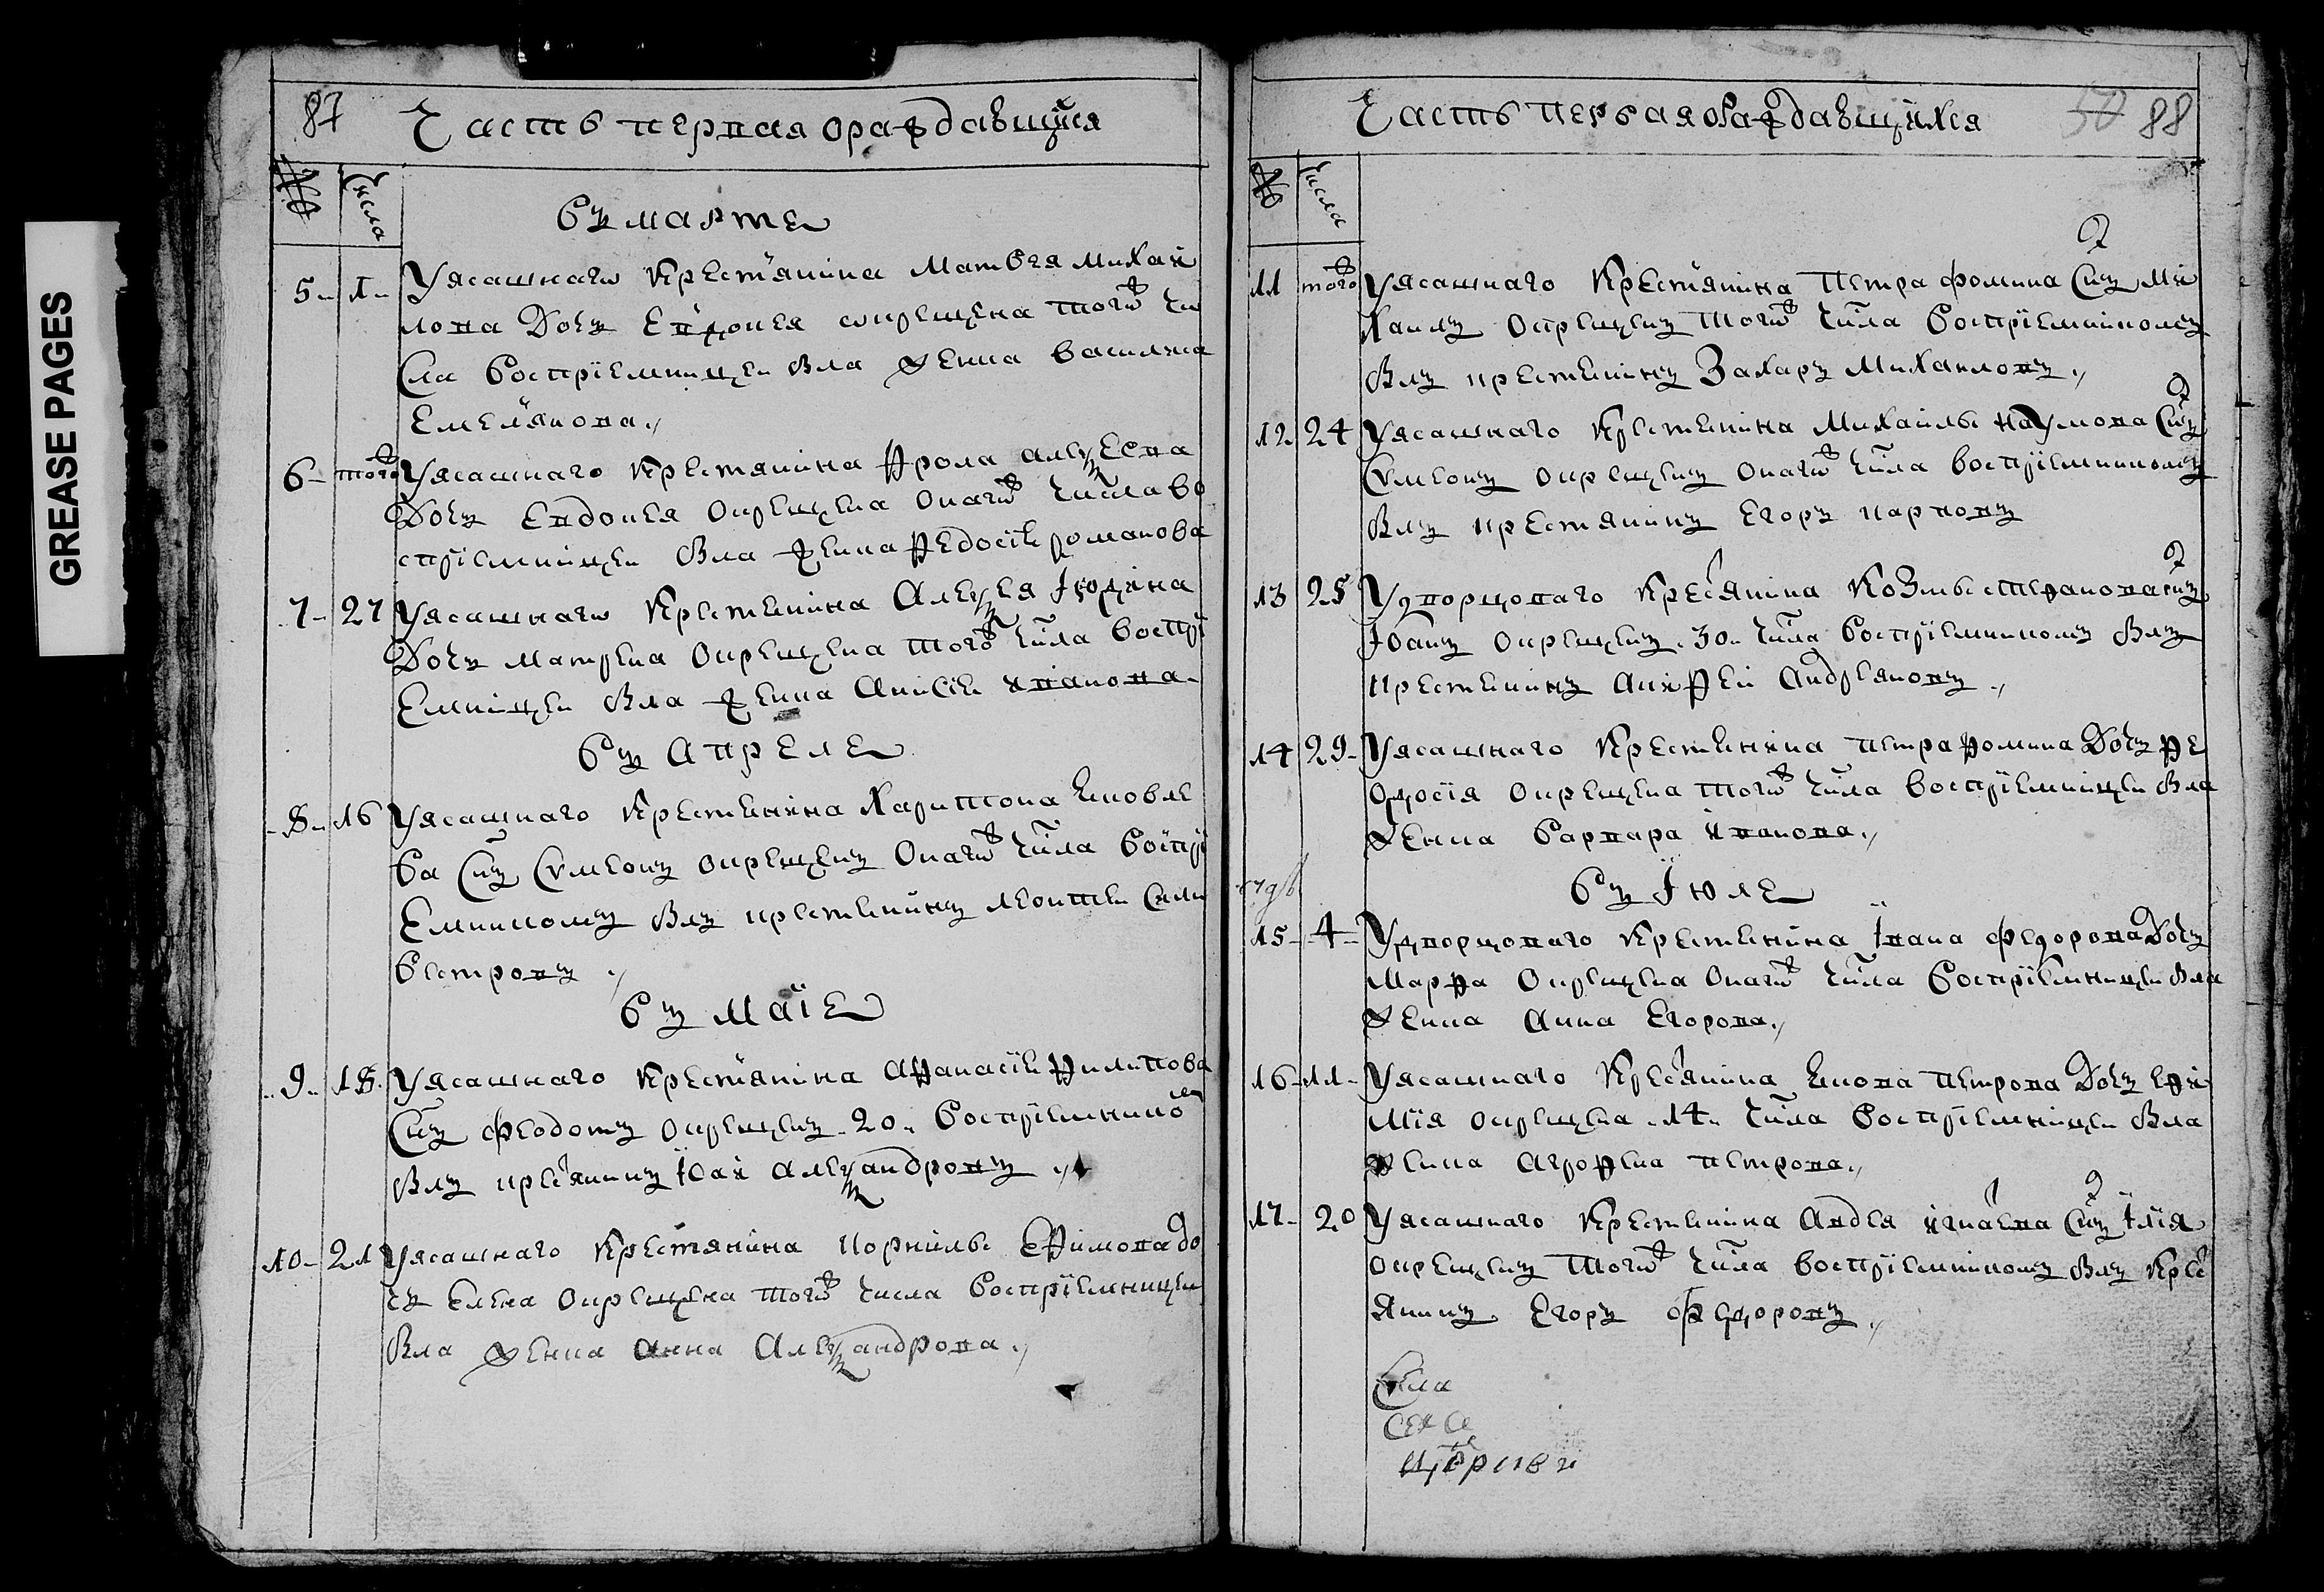 GREASE PAGES
87 Часть первая ораждавшихся
№ Числа
въ марте
5 1 Уясашнаго крестьянина Матвея Михаи
лова дочь Евдокея окрещена того ж чи
сла восприемницеи была женка василиса
Емельянова
6 того ж Уясашнаго крестьянина Фрола алеѯеева
дочь Евдокея окрещена онаго ж числа во
сприемницеи была женка Федосїя романова
7 27 Уясашнаго крестьянина Алеѯея Июдина
дочь матрена окрещена того ж числа воспрї
емницеи была женка Анисїя иванова
въ апреле
8 16 Уясашнаго крестьянина Харитона яковле
ва снъ Сѵмеонъ окрещенъ онаго ж числа воспрї
емникомъ былъ крестьянинъ леонтеи сили
вестровъ
въ маїе
9 18 Уясашнаго крестьянина афанасїя филипова
снъ феодотъ окрещенъ 20 восприемнико м
былъ крестьянинъ Іоаи алеѯандровъ
10 21 Уясашнаго крестьянина корнилы Ефимова до
чь елена окрещена того ж числа восприемницеи
была женка анна Алеѯандрова
Часть первая ораждавшихся 50 88
№ Числа
11 того ж Уясашнаго крестьянина Петра фомина снъ ми
хаилъ окрещенъ того ж числа восприемникомъ
былъ крестьянинъ Захаръ Михаиловъ
12 24 Уясашнаго крестьянина Михаилы наумова снъ
Сѵмеонъ окрещенъ онаго ж числа восприемникомъ
былъ крестьянинъ Егоръ карповъ
13 25 Удворцоваго крестьянина козмы стефанова снъ
Іоанъ окрещенъ 30 числа восприемникомъ былъ
крестьянинъ аникѣеи андреяновъ
14 29 Уясашнаго крестьянина петра фомина дочь фе
одосїя окрещена того ж числа восприемницеи была
женка варвара иванова
въ Іюле
15 4 Удворцоваго крестьянина Івана федорова дочь
марфа окрещена онаго ж числа восприемницеи была
женка анна Егорова
16 11 Уясашнаго крестьянина якова петрова дочь ефи
мїя окрещена 14 числа восприемницеи была
женка агрофена петрова
17 20 Уясашнаго крестьянина андрея игнатьева снъ Ілїя
окрещенъ того ж числа восприемникомъ былъ крес
янинъ Егоръ федоровъ
села
церкви